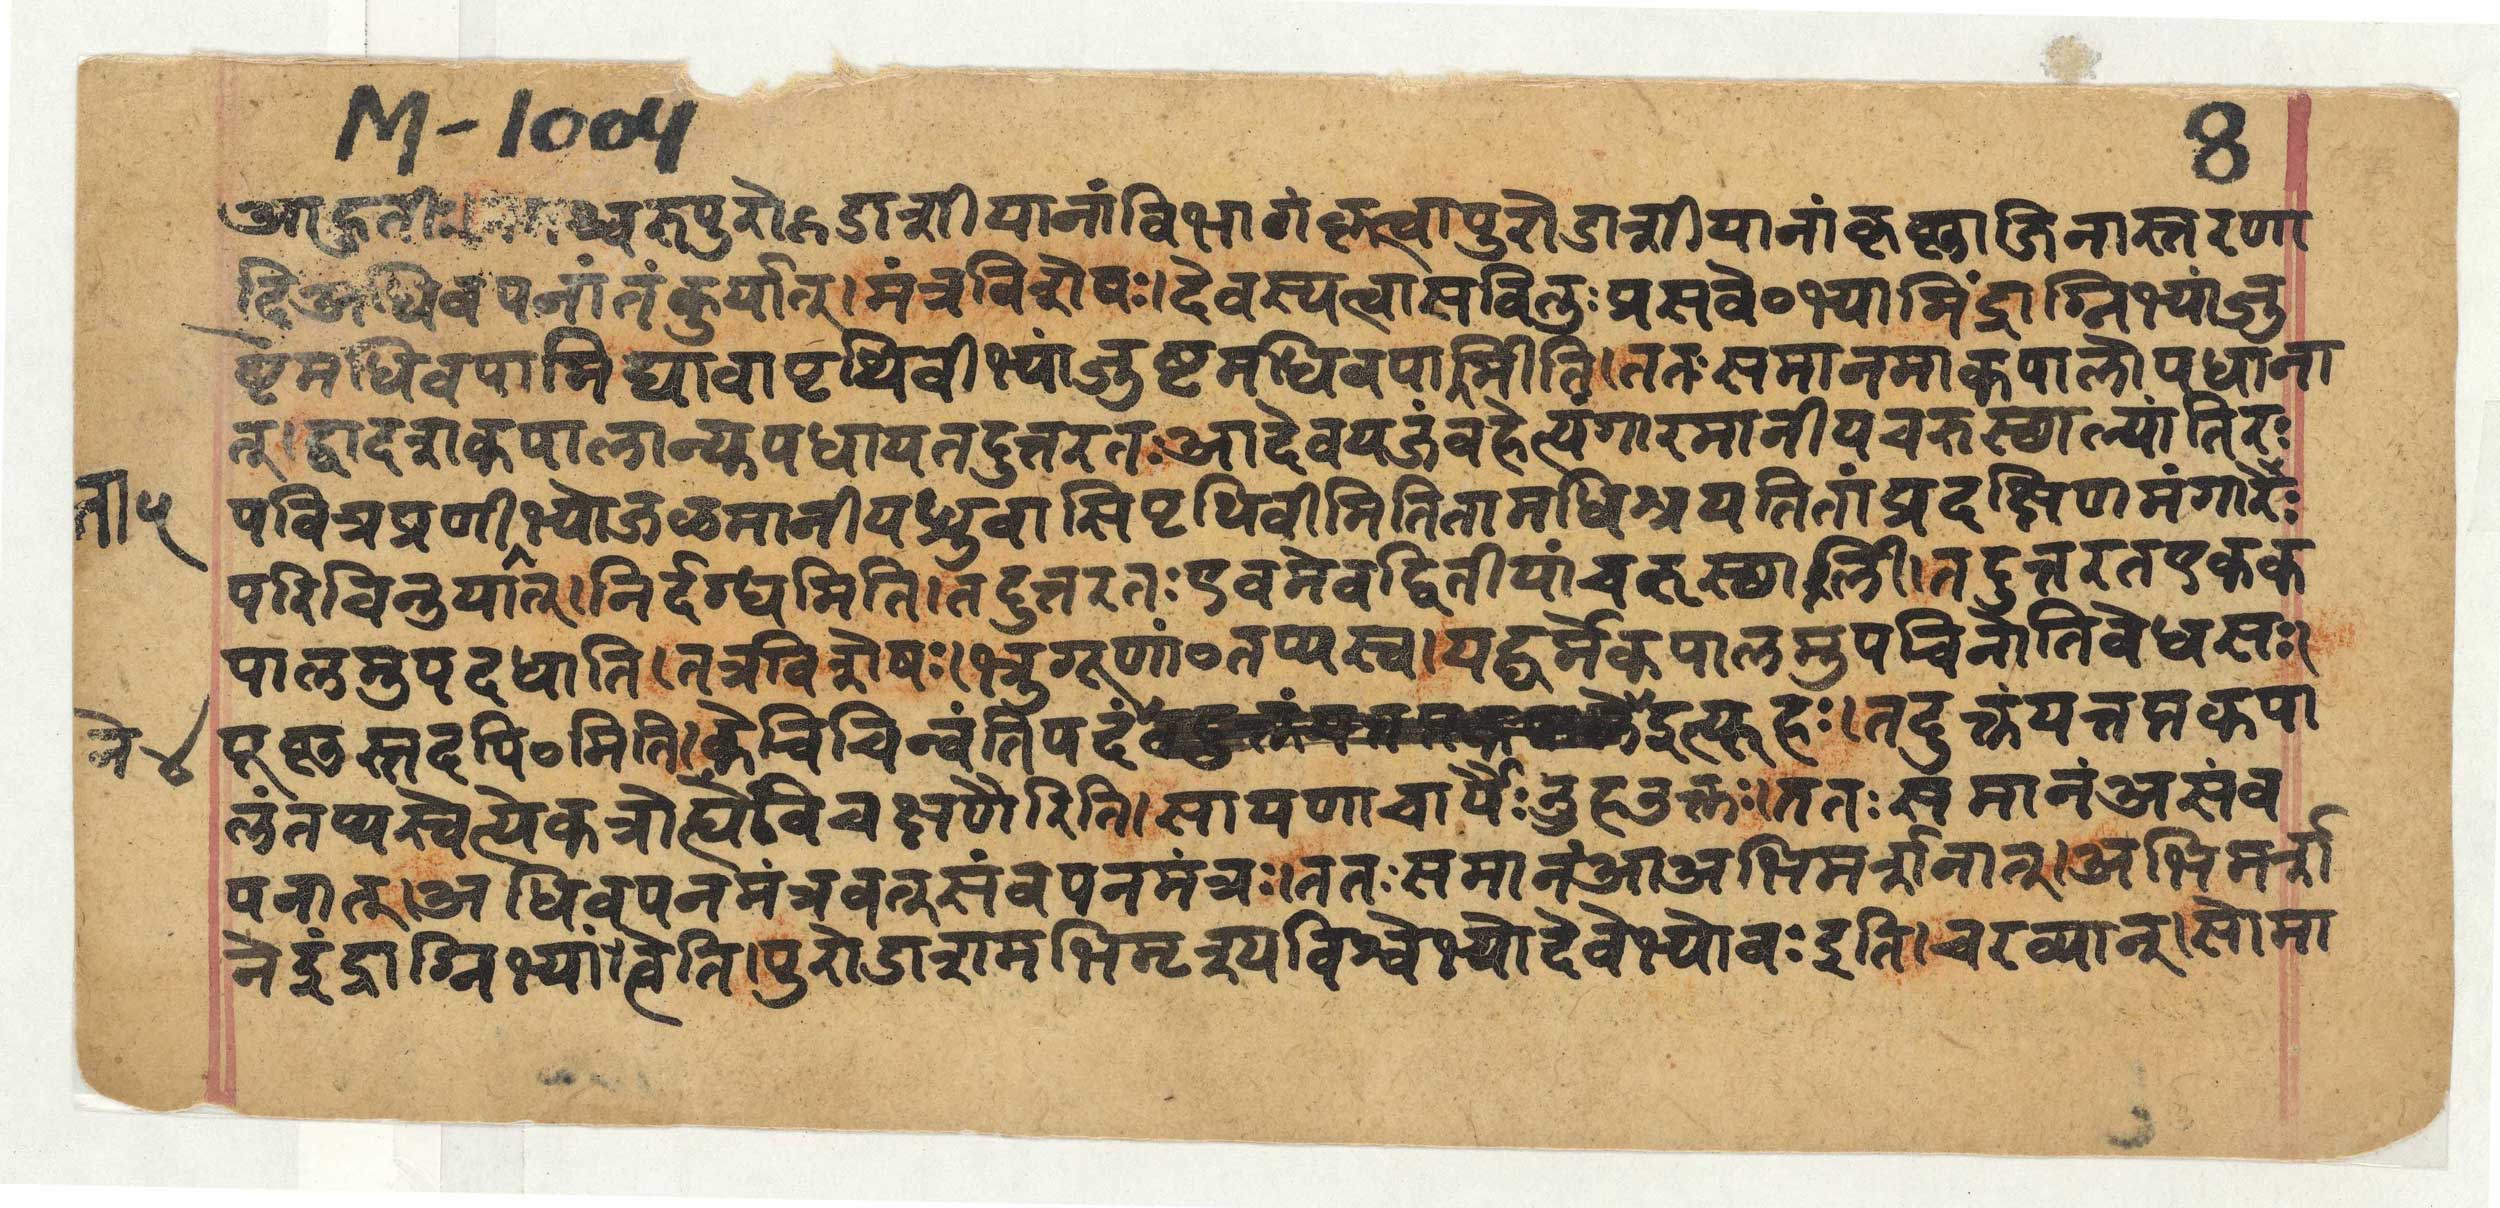 M-1004
8
आहुती श्चरुपुरोडाशीयानांविभागंकृत्वापुरोडाशीयानांकृष्णाजिनास्तरणा
दिअधिवपनांतंकुर्यात्।मंत्रविशेषः।देवस्यत्वासवितुःप्रसवे०भ्यामिंद्राग्निभ्यांजु
ष्टमधिवपामिद्यावापृथिवीभ्यांजुष्टमधिवपामीति।ततःसमानमाकपालोपधाना
त्।द्वादशकपालान्युपधायतदुत्तरतःआदेवयजंवहेत्यंगारमानीयचरुस्थाल्यांतिरः
ता५
पवित्रप्रणीभ्योजलमानीयध्रुवासिपृथिवीमितितामधिश्रयतितांप्रदक्षिणमंगारैः
परिचिनुयात्।निर्दग्धमिति।तदुत्तरतःएवमेवद्वितीयांचरुस्थाली।तदुत्तरतएकक
पालमुपदधाति।तत्रविशेषः।भृगूणां०तप्यस्व।यद्घर्मेकपालमुपचिनोतिवेधसः।
ने४
पूष्णस्तदपि०मिति।केचिचिन्वंतिपदं इत्यूहः।तदुक्तंयत्तत्रकपा
लंतप्यस्वेत्येकत्रोह्यैर्विचक्षणैरिति।सायणाचार्यैःतुहउक्तः।ततःसमानंअसंव
पनात्।अधिवपनमंत्रवत्संवपनमंत्रः।ततःसमानंआअभिमर्शनात्।अभिमर्श
नेइंद्राग्निभ्यांत्वेति।पुरोडाशमभिमृश्यविश्वेभ्योदेवेभ्योवःइति।चरव्यान्।सोमा